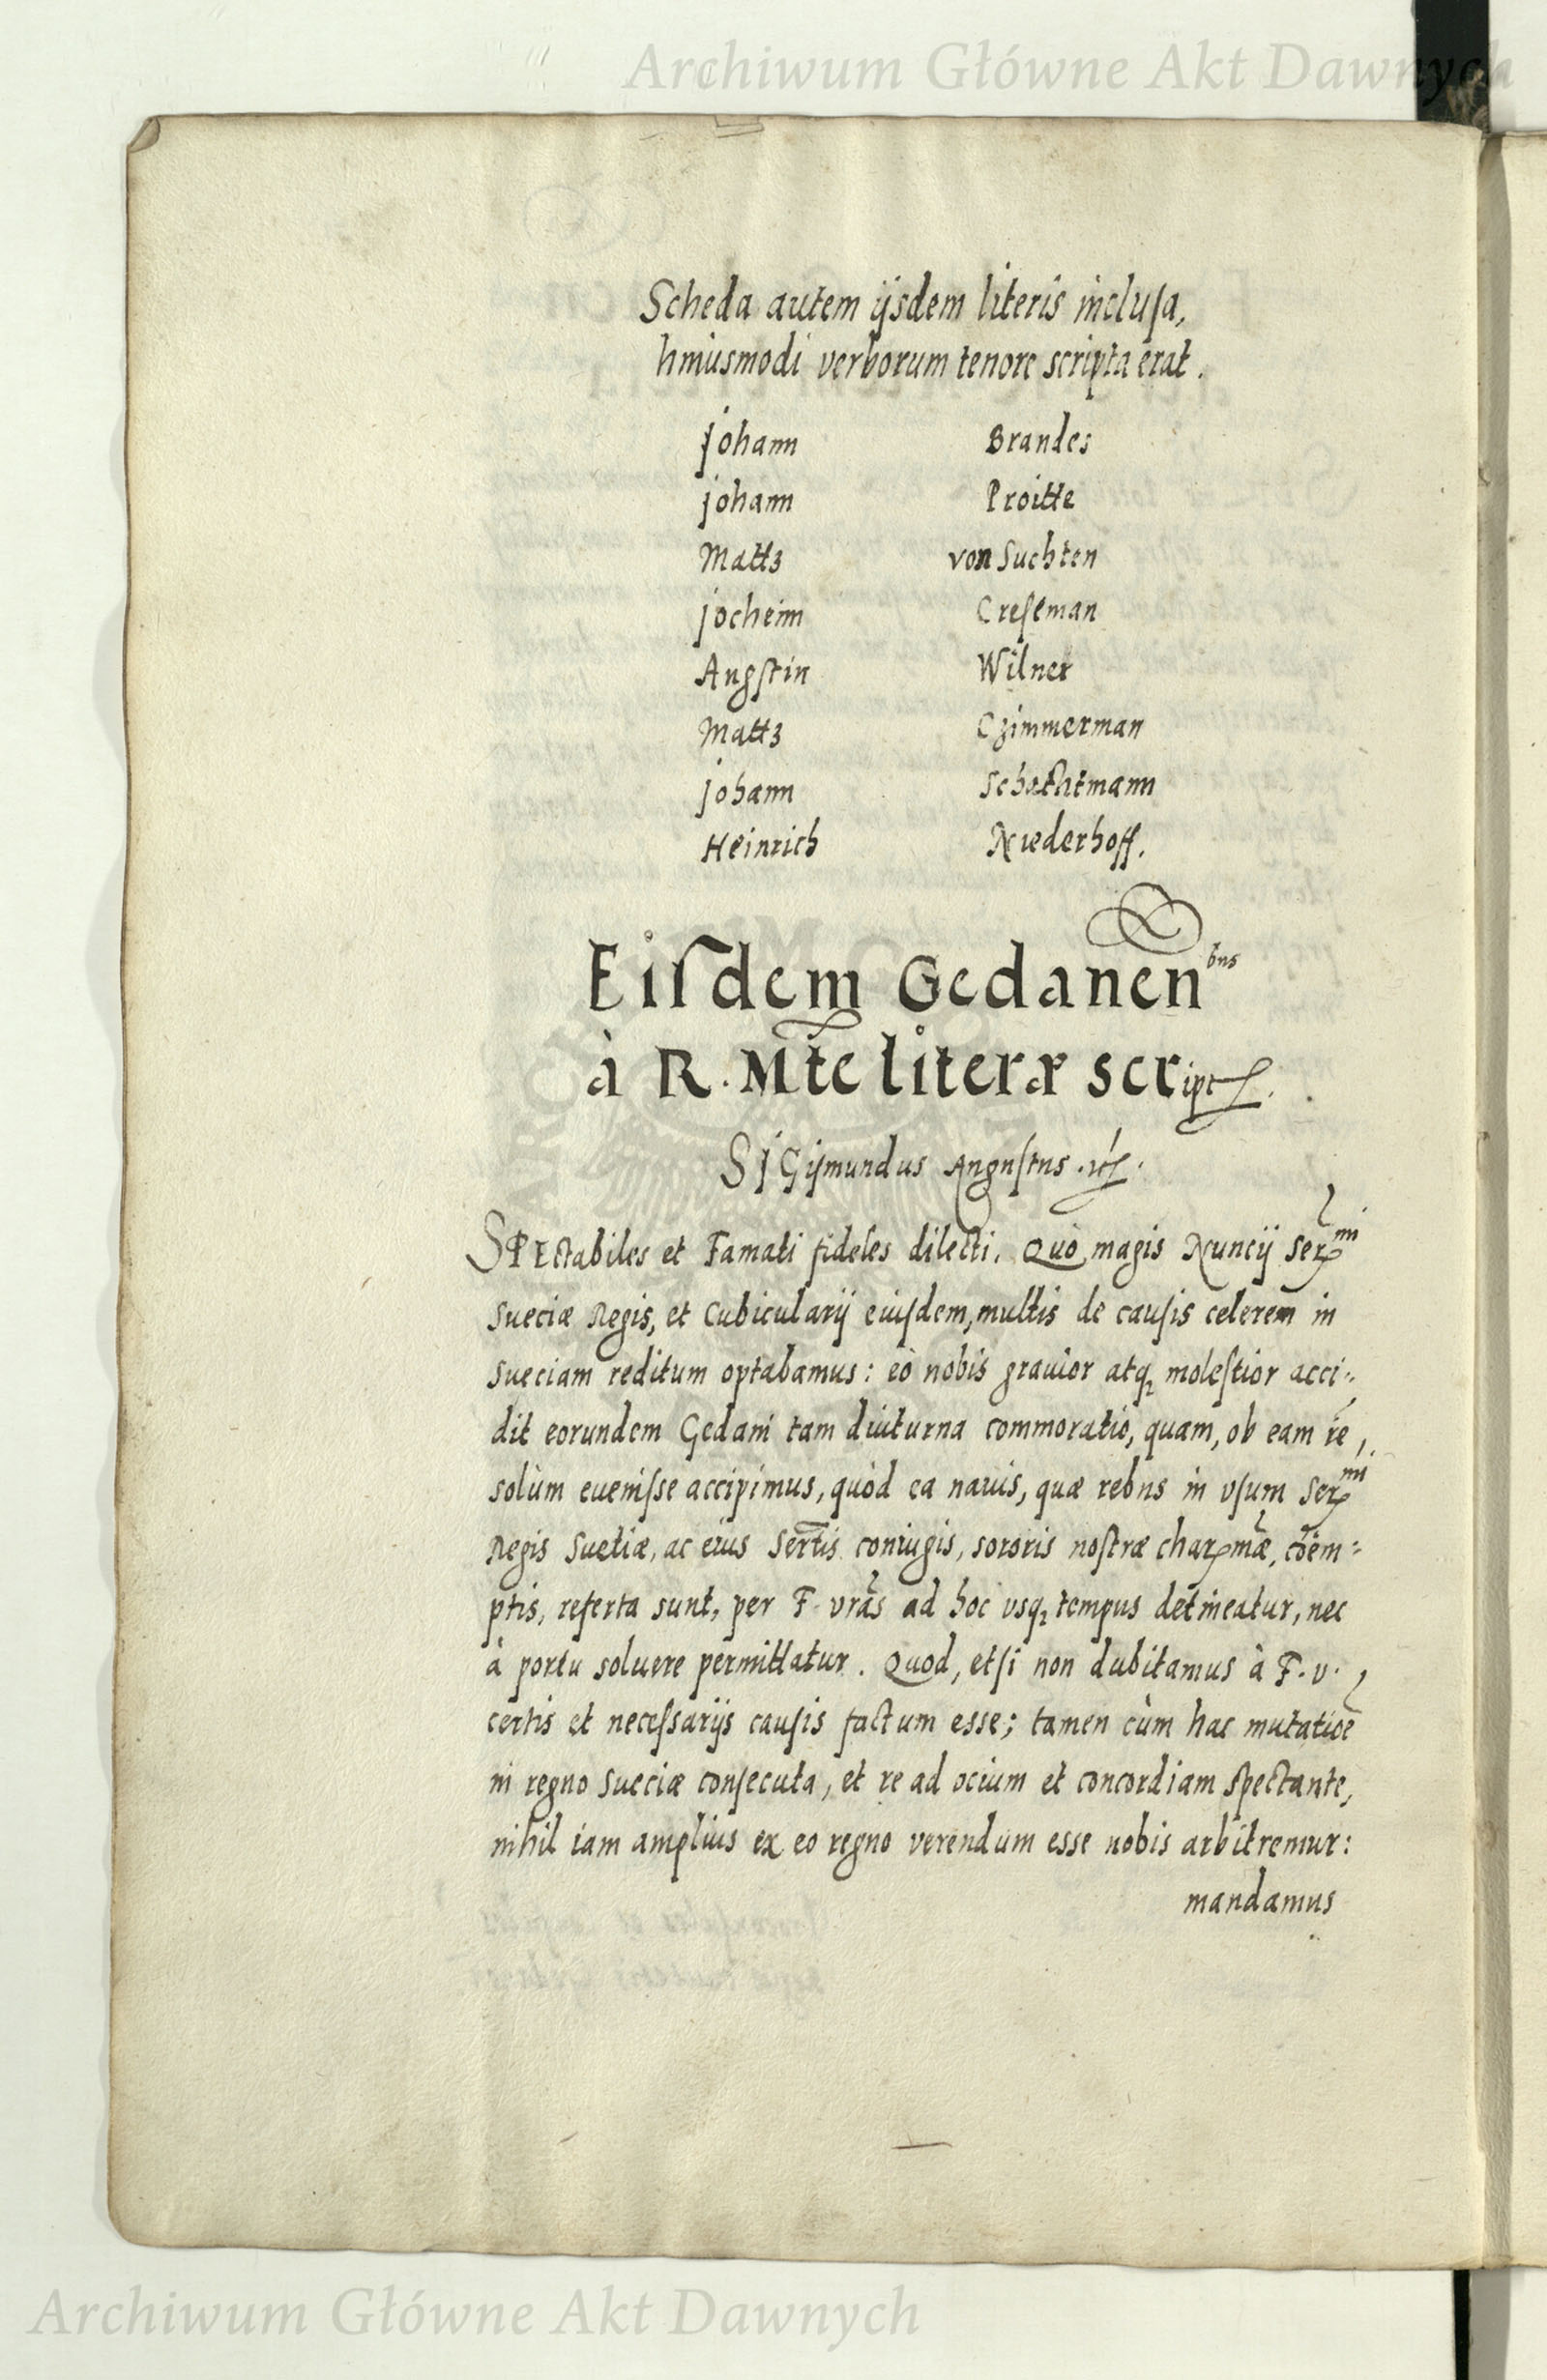 Archiwum Główne Akt Dawnych
Scheda autem ijsdem literis inclusa,
huiusmodi verborum tenore scripta erat.
Johann Brandes
Johann Proitte
Mattz von Suchten
Jocheim Creseman
Augstin Wilner
Mattz Czimmerman
Johann Schachtmann
Heinrich Niederhoff.
Eisdem Gedanen bus
à R. Mte literæ script.
Sigismundus Augustus. etc.
SPEctabiles et Famati fideles dilecti. Quò magis Nuncij Ser mi
Sueciæ Regis, et Cubicularij eiusdem, multis de causis celerem in
Sueciam reditum optabamus: eò nobis grauior atq; molestior acci:
dit eorundem Gedani tam diuturna commoratio, quam, ob eam rē,
solùm euenisse accipimus, quòd ea nauis, quæ rebus in vsum Ser mi
Regis Suetiæ, ac eius Sertis coniugis, sororis nostræ charmæ, coëm:
ptis, referta sunt, per F. vras ad hoc vsq; tempus detineatur, nec
à portu soluere permittatur. Quod, etsi non dubitamus à F. v.
certis et necessarijs causis factum esse; tamen cùm hac mutatioē
in regno Sueciæ consecuta, et re ad ocium et concordiam spectante,
nihil iam amplius ex eo regno verendum esse nobis arbitremur:
mandamus
Archiwum Główne Akt Dawnych